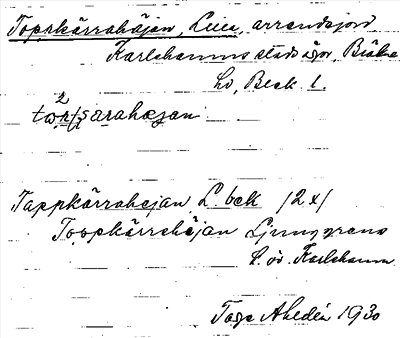 Toppkärrahöjan, Lien, arrendejord,
Karlshamns stads ägor, Bräkne
hd, Blek. l.
2
Tappkärrahejan L. bek (2x)
Toppkärrehöjan Ljunggrens
t. öv. Karlshamn
Tage Ahldén 1930